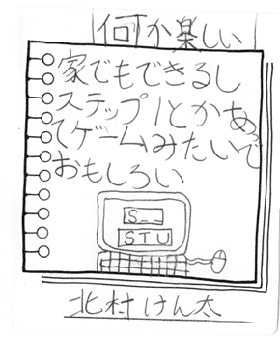 何が楽しい
家でもできるし
ステップ1とかあっ
てゲームみたいで
おもしろい
S__
STU
北村けん太